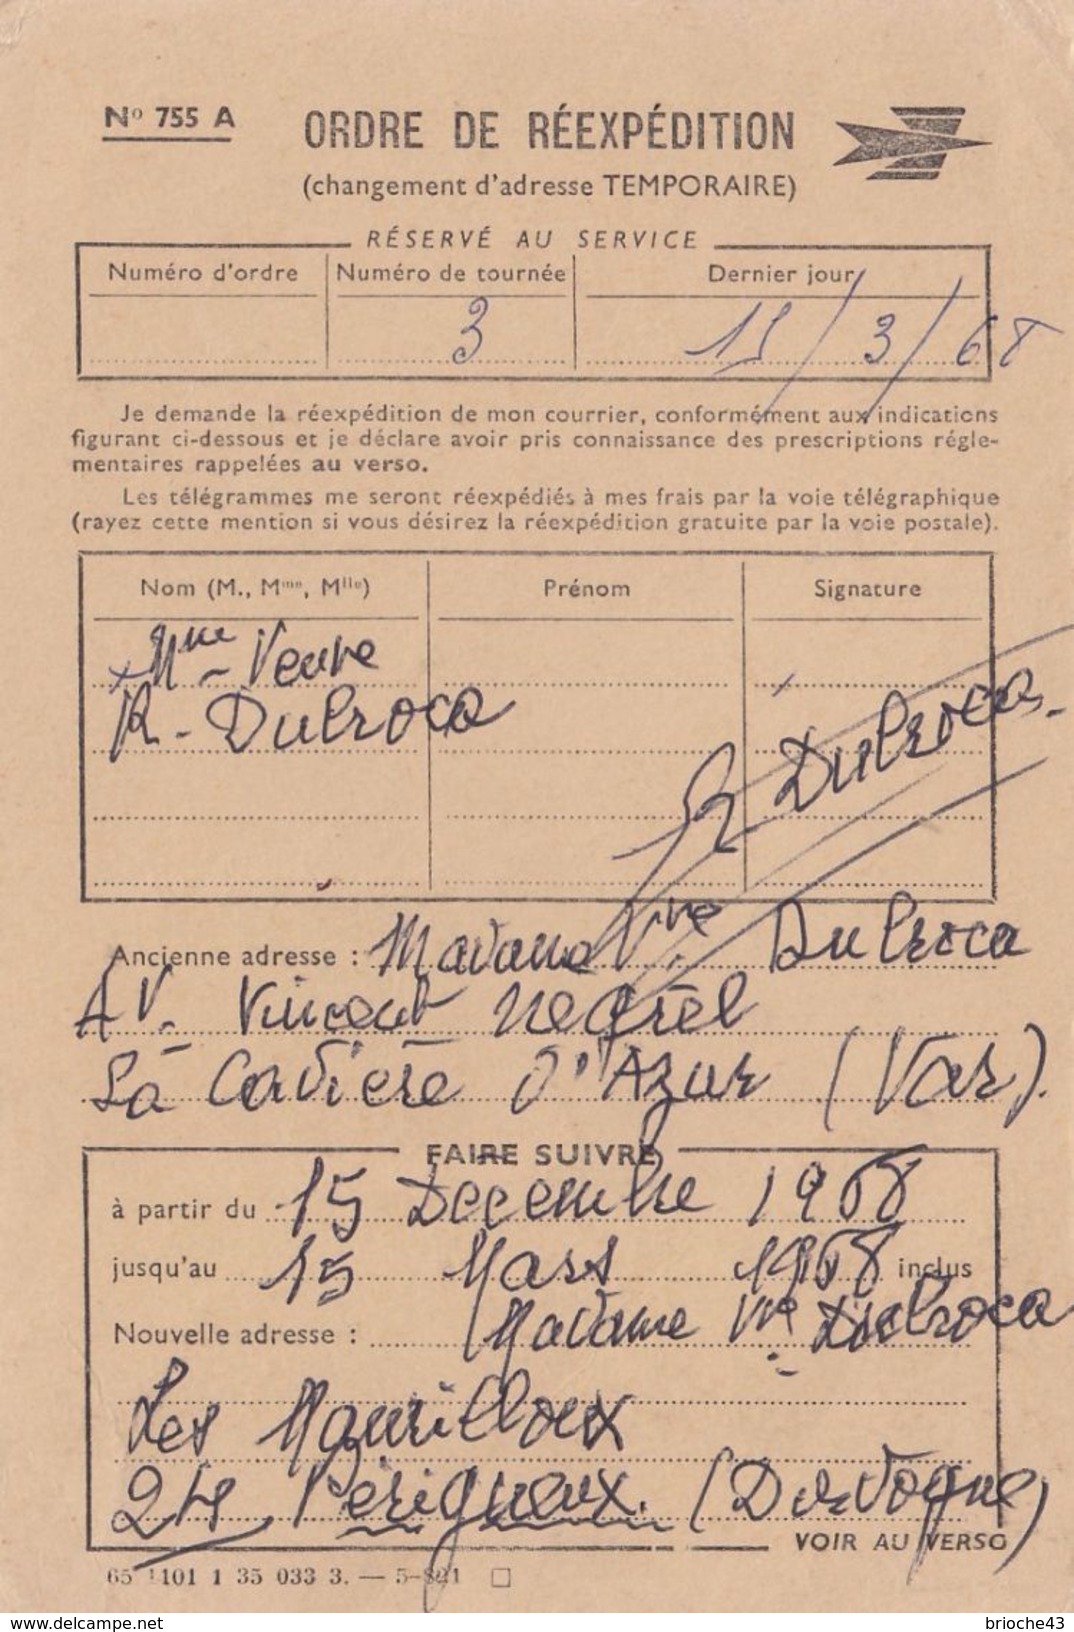 Nº 755 A
ORDRE DE RÉEXPÉDITION
(changement d'adresse TEMPORAIRE)
RÉSERVÉ AU SERVICE
Numéro d'ordre Numéro de tournée Dernier jour
3 15/3/68
Je demande la réexpédition de mon courrier, conformément aux indications
figurant ci-dessous et je déclare avoir pris connaissance des prescriptions régle-
mentaires rappelées au verso.
Les télégrammes me seront réexpédiés à mes frais par la voie télégraphique
(rayez cette mention si vous désirez la réexpédition gratuite par la voie postale).
Nom (M., Mme, Mlle) Prénom Signature
Mme - Veuve
R. Dubroca
R Dubroca
Ancienne adresse : Madame Vve Dubroca
AV. Vincent
La Cavière d'Azur (Var).
FAIRE SUIVRE
à partir du 15 Decembre 1968
jusqu'au 15 Mars 1968 inclus
Nouvelle adresse : Madame Vve Dubroca
Les
24 Périgueux. (Dordogne)
VOIR AU VERSO
1101 1 35 033 3. —
www.delcampe.net brioche43